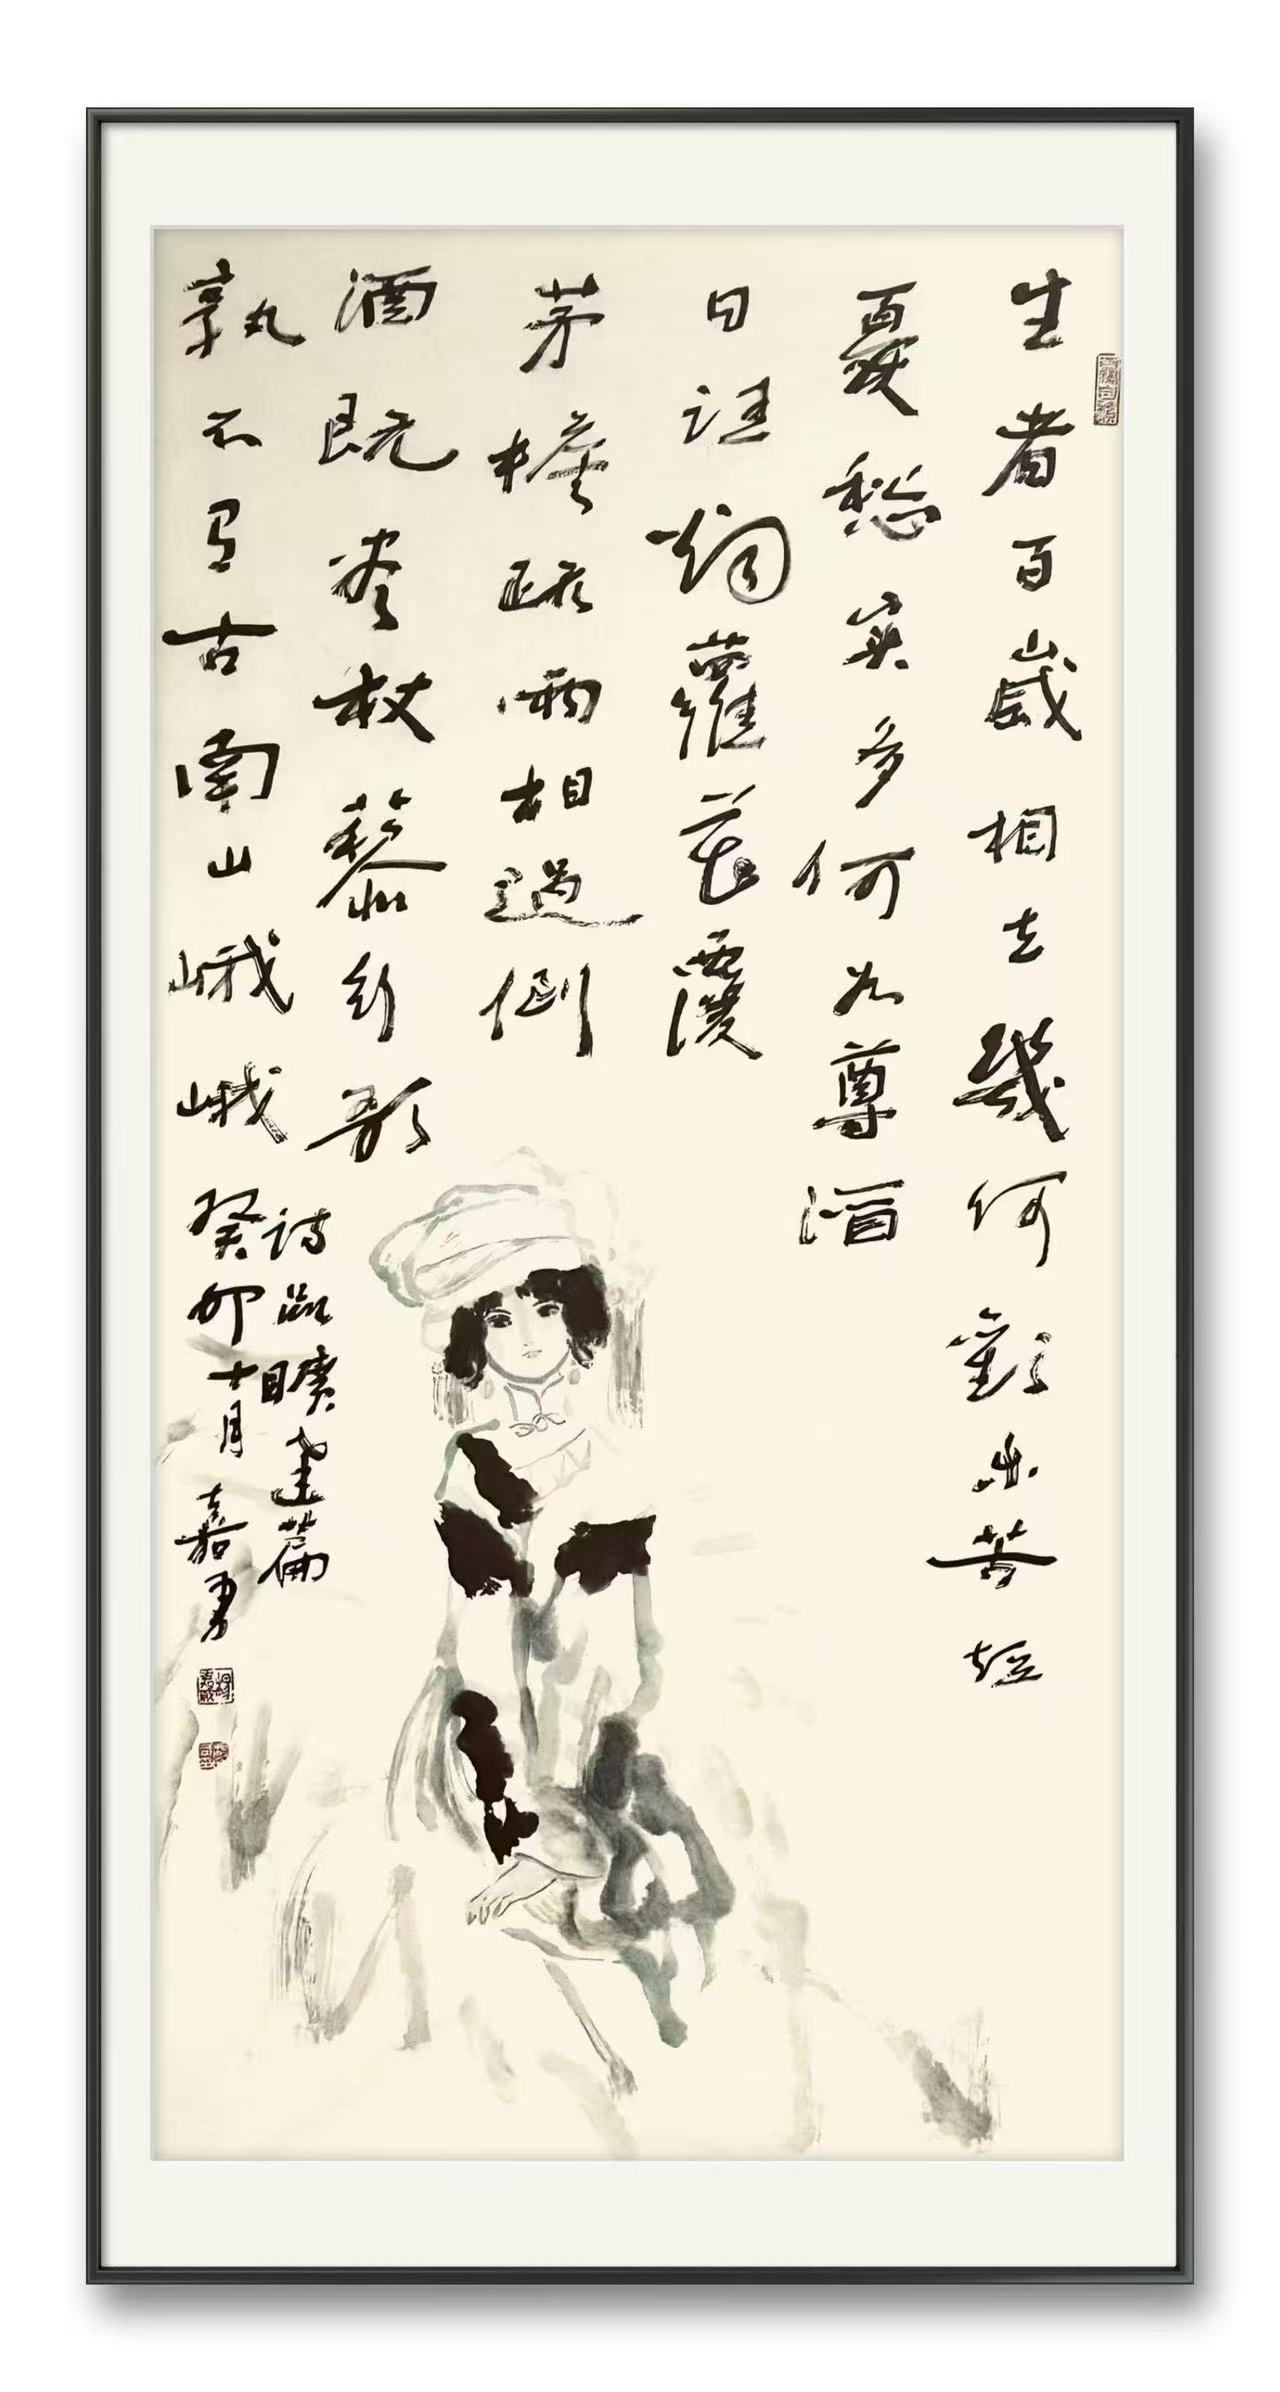 生者百歲相去幾何歡乐苦短
憂愁实多何如尊酒
日往烟蘿花覆
茅檐疏雨相過倒
酒既盡杖藜行歌
孰不有古南山峨峨
詩品曠達篇
癸卯十月嘉勇